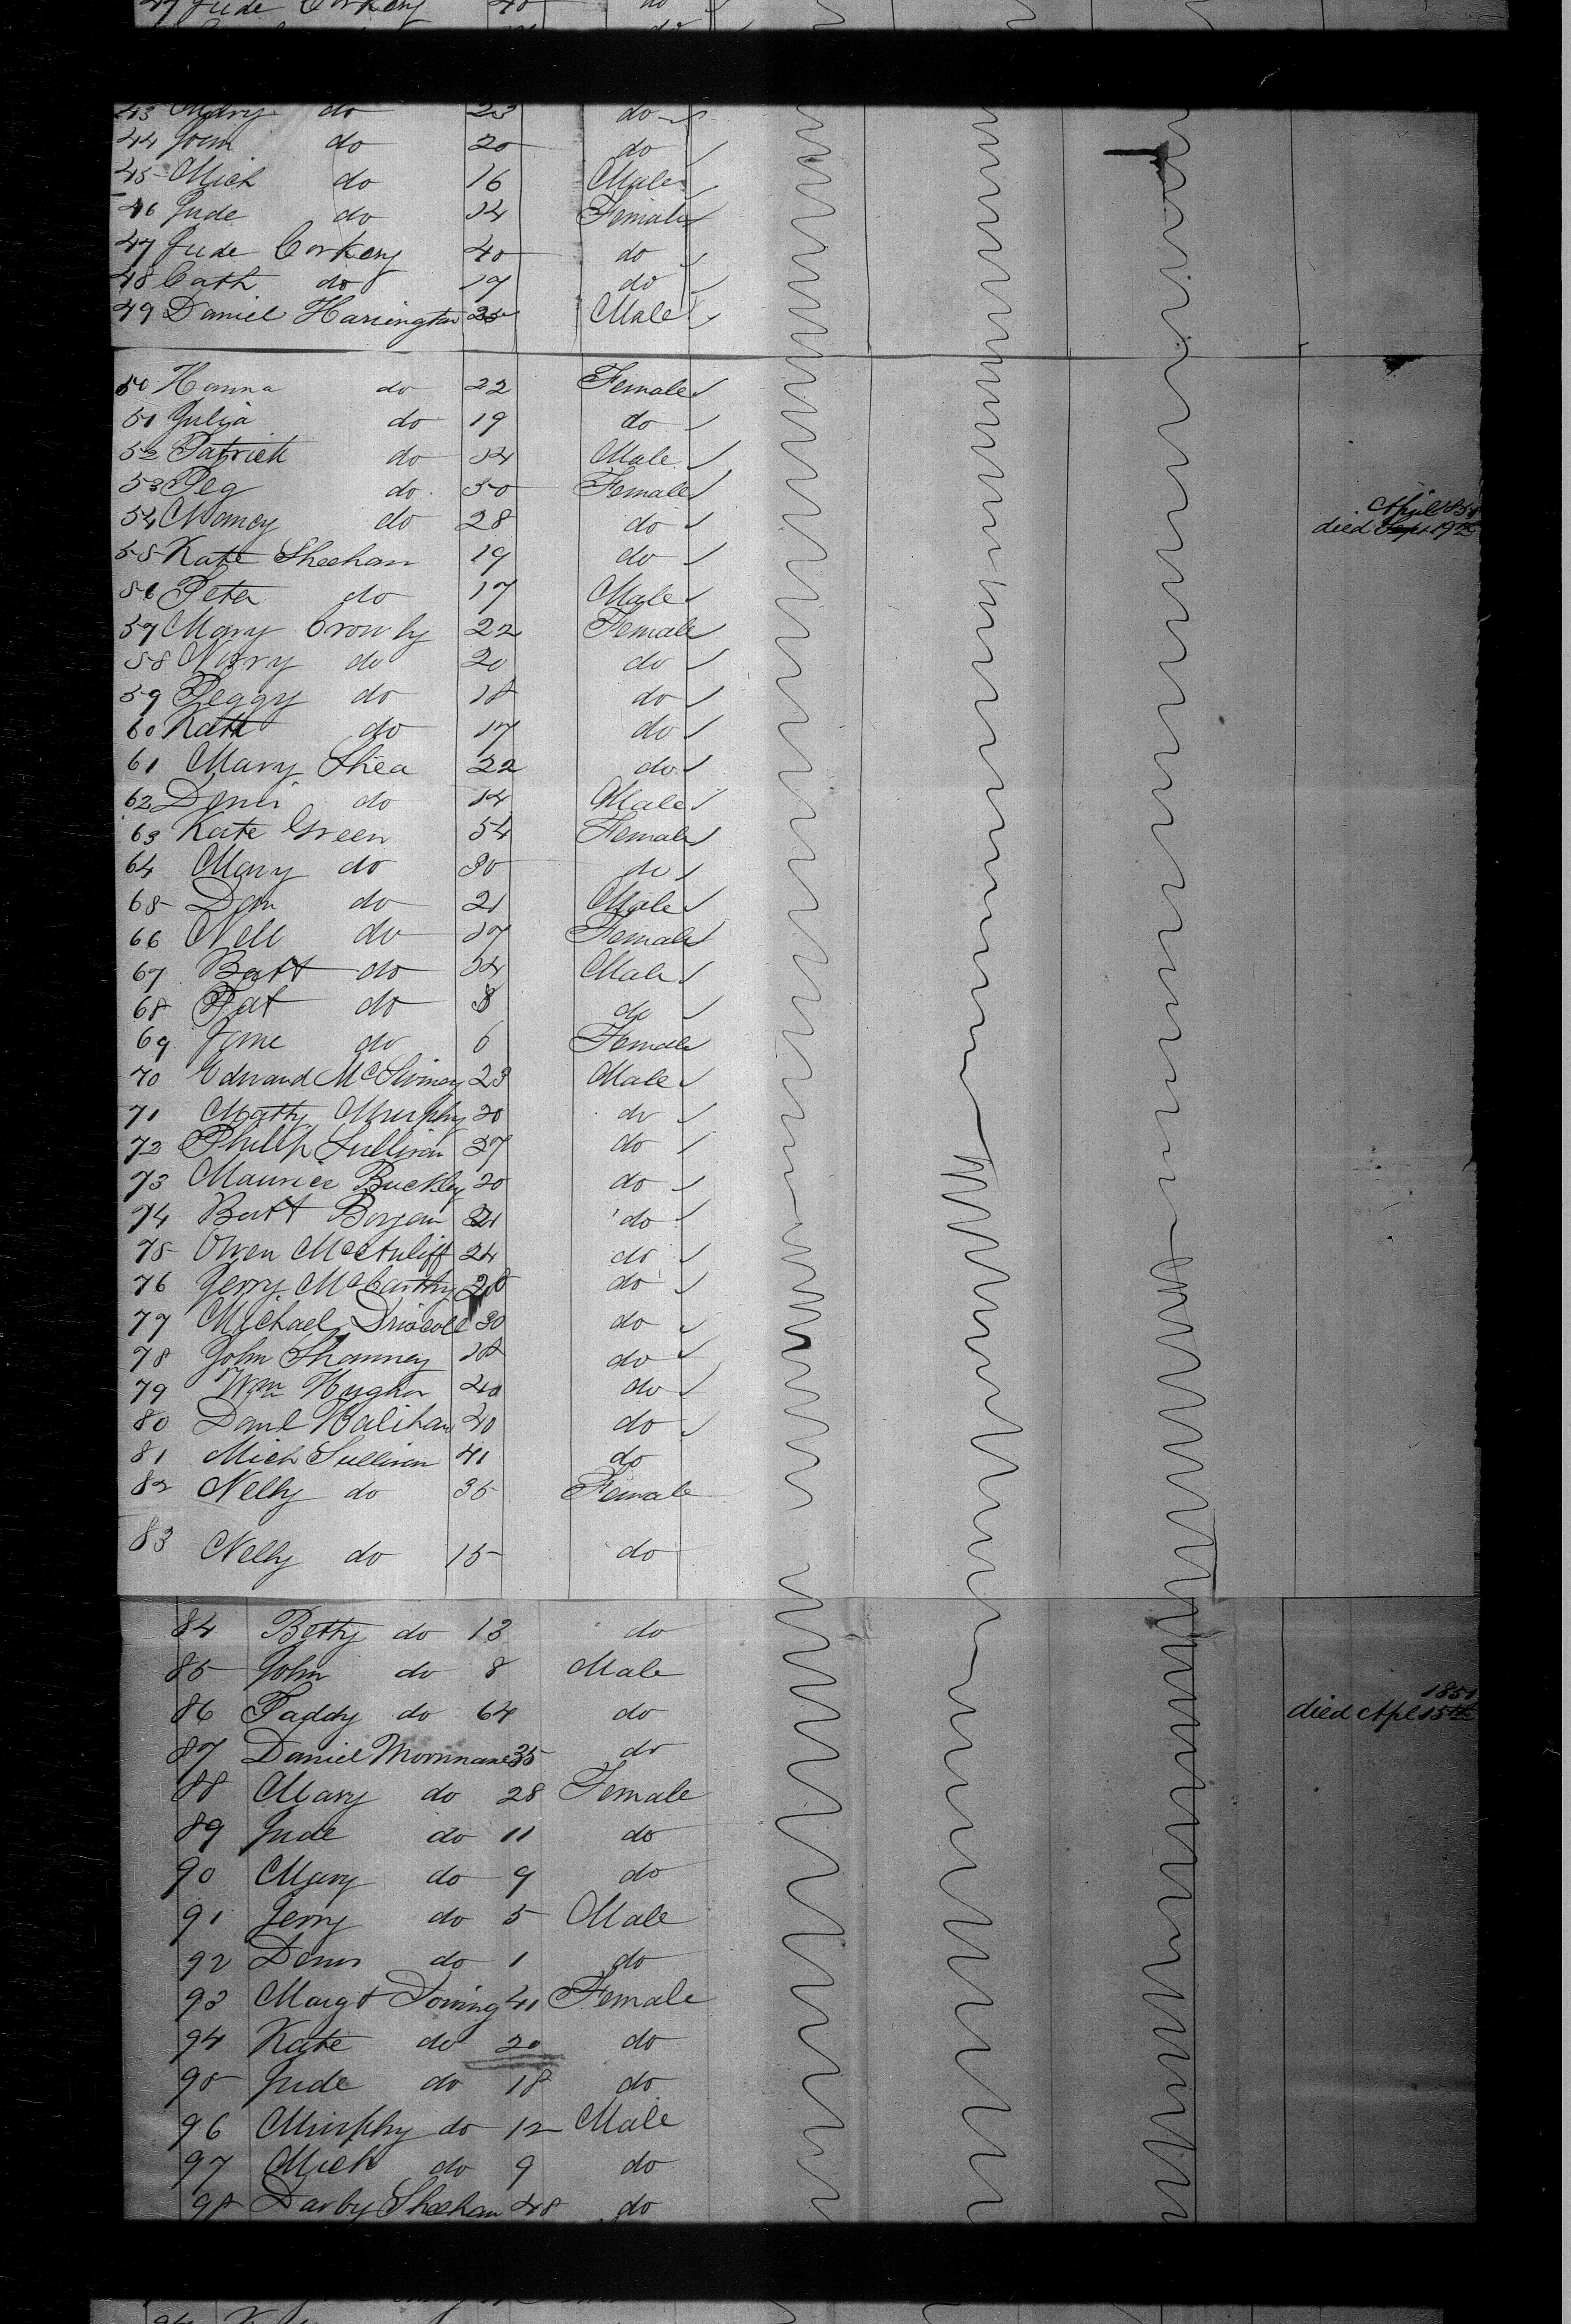 47 Jude Corkery 40 do
43 Mary do 23 do
44 do 20 do
45 Mich do 16 Male
46 Jude do 14 Female
47 Jude Corkery 40 do
48 Cath do 17 do
49 Daniel Harrington 25 Male
50 Hanna do 22 Female
51 Julia do 19 do
52 Patrick do 14 Male
53 Peg do 30 Female
54 Nancy do 28 do died April 19th
55 Kate Sheehan 19 do
56 Peter do 17 Male
57 Mary Crowly 22 Female
58 Norry do 20 do
59 Peggy do 18 do
60 Kate do 17 do
61 Mary Shea 22 do
62 Denis do 14 Male
63 Kate Green 54 Female
64 Mary do 30 do
65 Dan do 21 Male
66 Nell do 17 Female
67 Batt do 14 Male
68 Pat do 8 do
69 Jane do 6 Female
70 Edward 23 Male
71 Matty Murphy 20 do
72 Phillip Sullivan 27 do
73 Maurice Buckley 20 do
74 Batt do
75 Owen McAuliff 24 do
76 Jerry McCarthy do
77 Michael Driscoll 30 do
78 John do
79 Wm 40 do
80 Danl 40 do
81 Mich Sullivan 41 do
82 Nelly do 35 Female
83 Nelly do 15 do
84 Betty do 13 do
85 John do 8 Male
86 Paddy do 64 do died Apl 15th 1851
87 Daniel 35 do
88 Mary do 28 Female
89 Jude do 11 do
90 Mary do 9 do
91 Jerry do 5 Male
92 Denis do 1 do
93 Margt 41 Female
94 Kate do 20 do
95 Jude do 18 do
96 Murphy do 12 Male
97 Mich do 9 do
98 Darby Sheehan 48 do